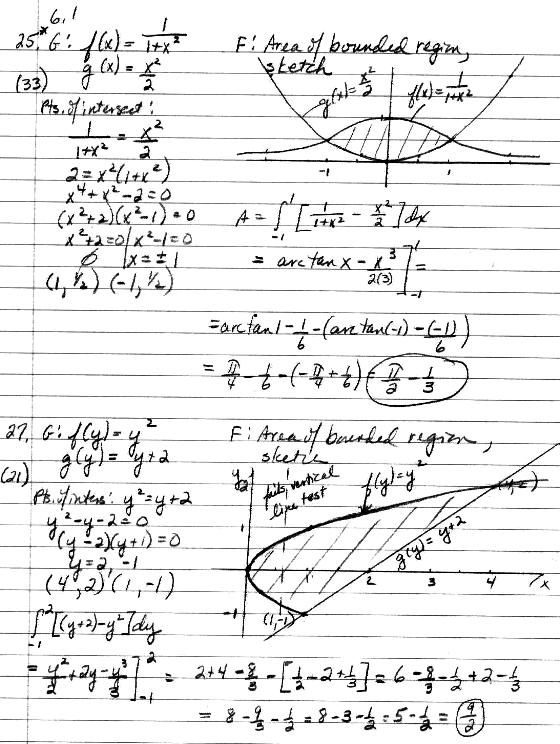 6.1
*25. G: f(x) = 1/(1+x²)
g(x) = x²/2
(33)
F: Area of bounded region,
sketch
g(x)= x²/2
f(x)= 1/(1+x²)
-1
1
Pts. of intersect:
1/(1+x²) = x²/2
2 = x²(1+x²)
x⁴ + x² - 2 = 0
(x²+2)(x²-1) = 0
x²+2=0 | x²-1=0
∅ | x = ±1
(1, 1/2) (-1, 1/2)
A = ∫₋₁¹ [1/(1+x²) - x²/2] dx
= arctan x - x³/2(3) ]₋₁¹ =
= arctan 1 - 1/6 - (arctan(-1) - (-1)/6)
= π/4 - 1/6 - (-π/4 + 1/6) = π/2 - 1/3
27. G: f(y) = y²
g(y) = y+2
(21)
F: Area of bounded region,
sketch
Pts. of inters: y² = y+2
y² - y - 2 = 0
(y-2)(y+1) = 0
y = 2, -1
(4, 2) (1, -1)
y
2
fails vertical
line test
f(y) = y²
(4,2)
g(y) = y+2
1
2
4
x
-1
(1,-1)
∫₋₁² [(y+2) - y²] dy
= y²/2 + 2y - y³/3 ]₋₁² = 2+4 - 8/3 - [1/2 - 2 + 1/3] = 6 - 8/3 - 1/2 + 2 - 1/3
= 8 - 9/3 - 1/2 = 8 - 3 - 1/2 = 5 - 1/2 = 9/2